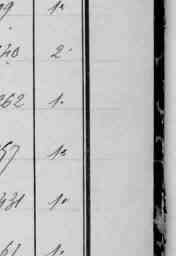 9 1.
40 2.
262 1.
57 1.
431 1.
61 1.